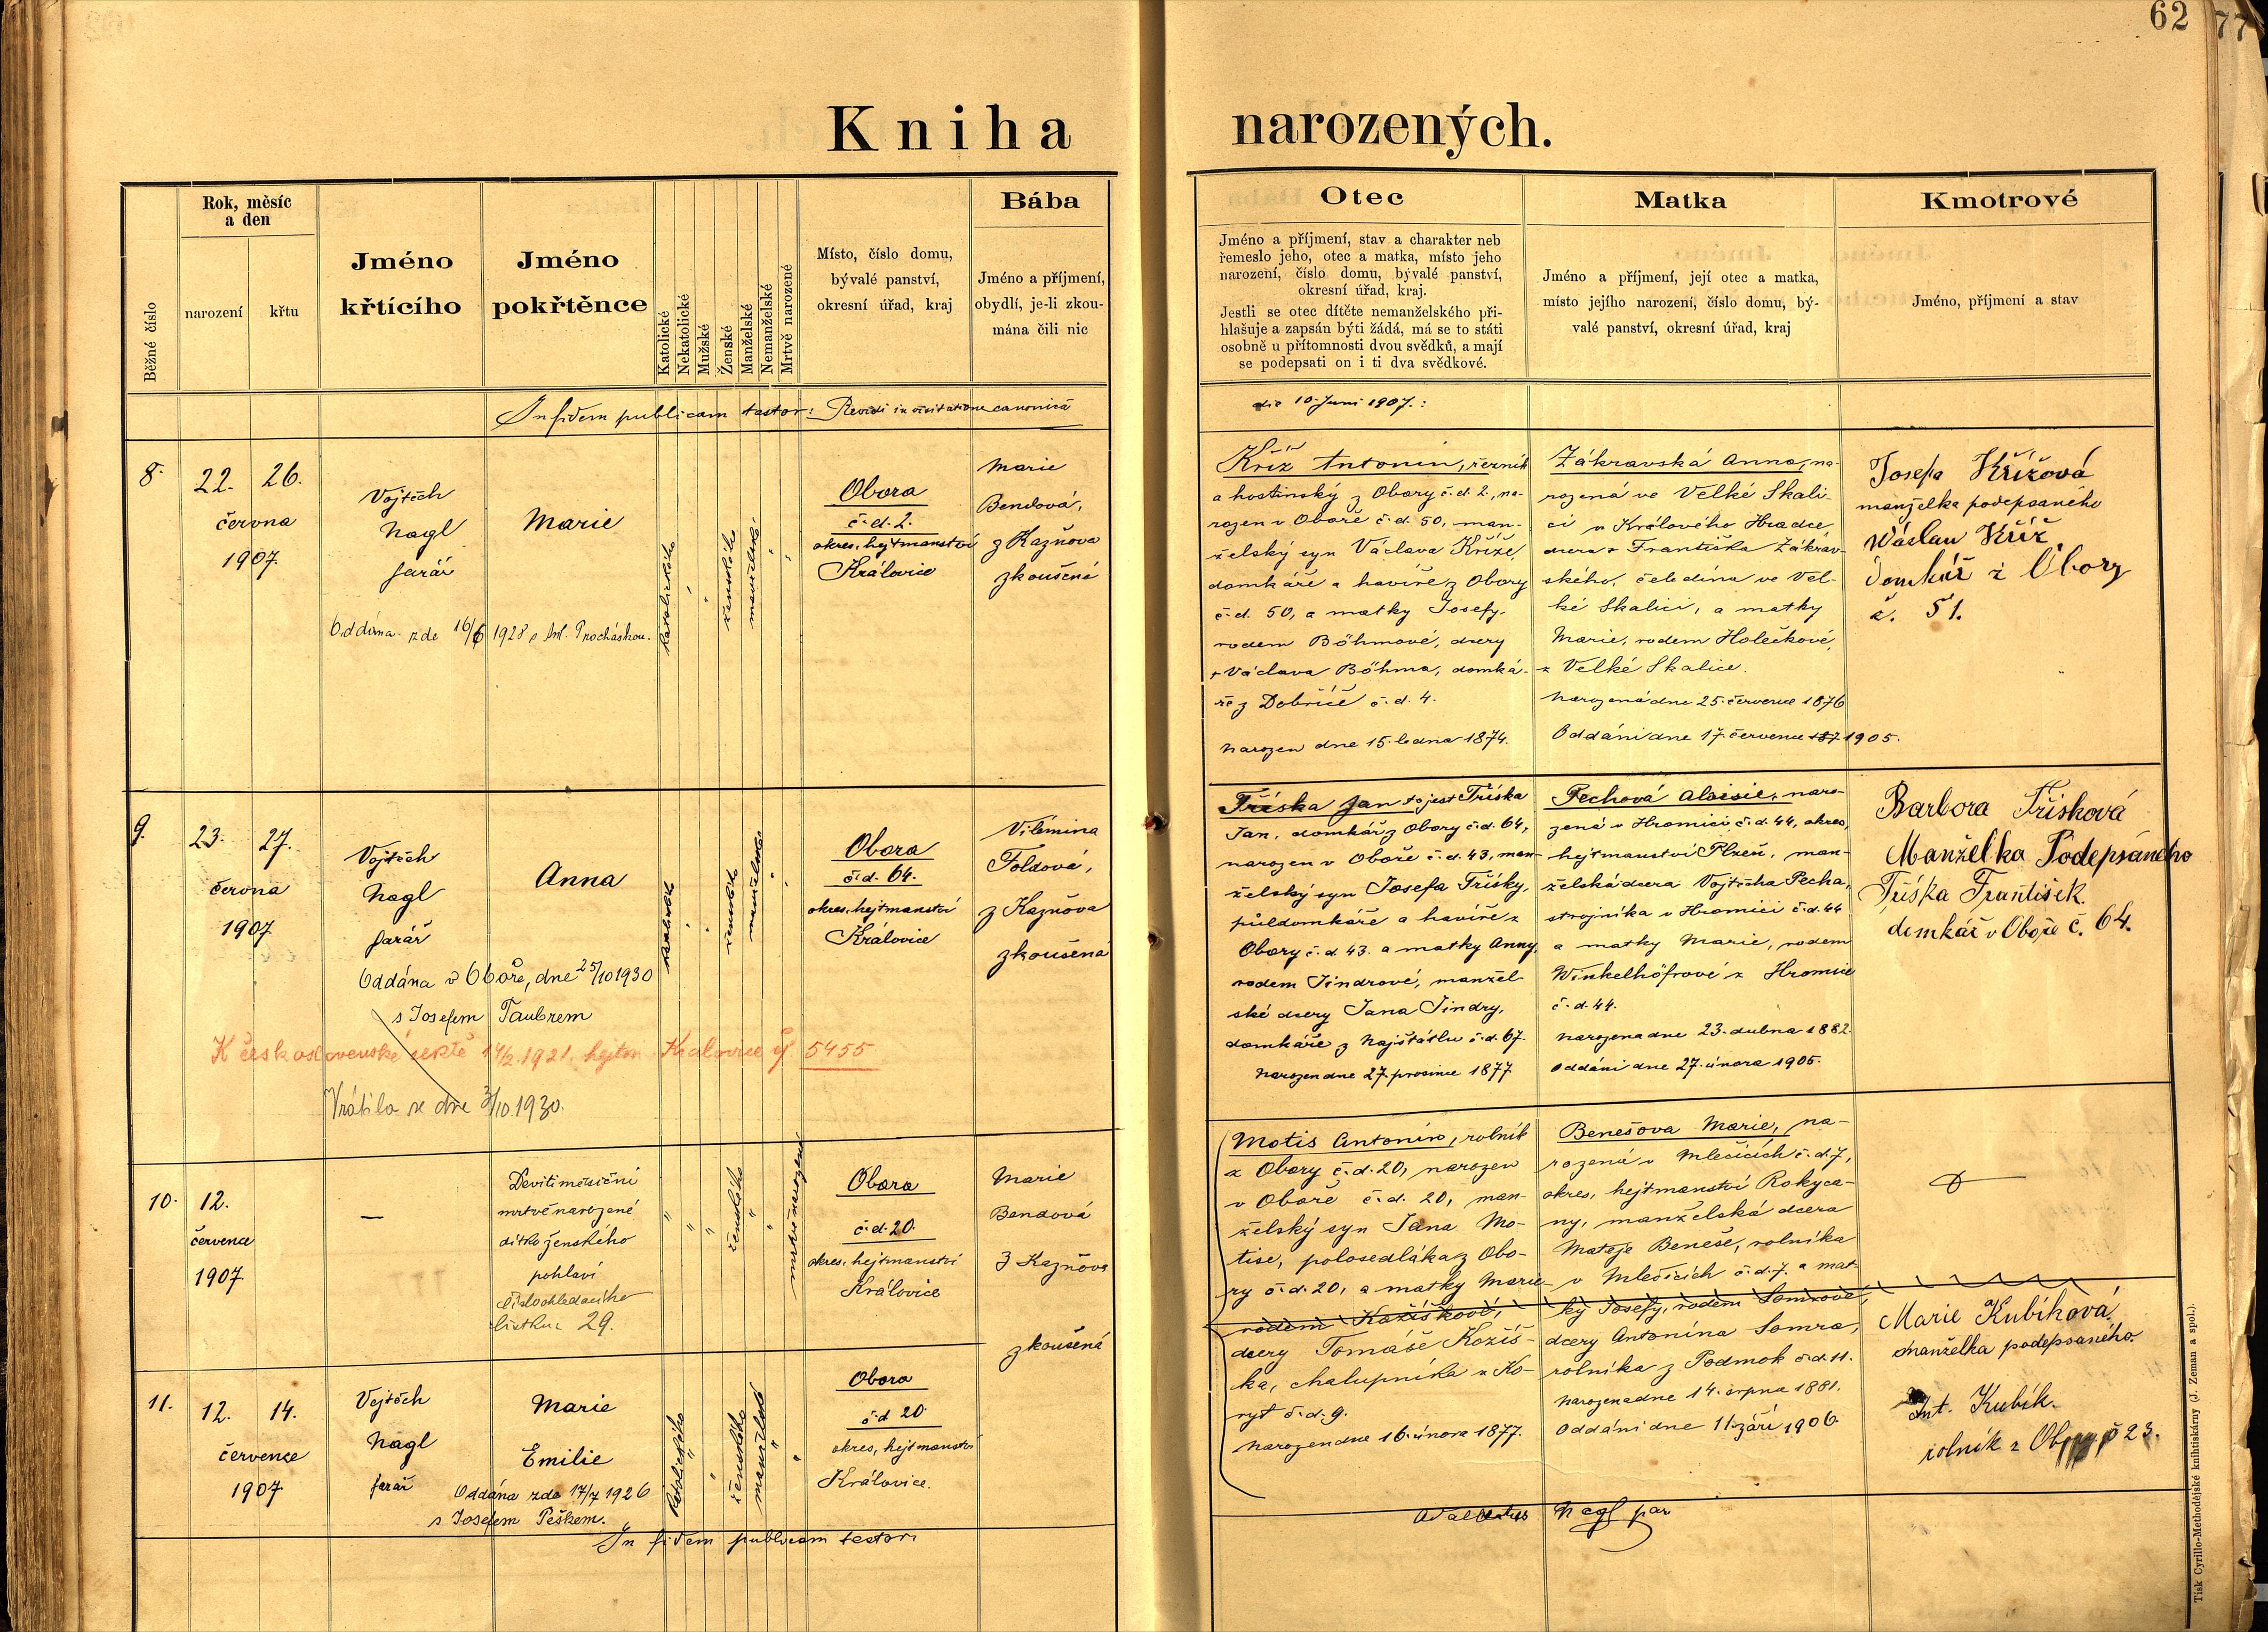 62
77
Kniha narozených.
Běžné číslo
Rok, měsíc
a den
narození
křtu
Jméno
křtícího
Jméno
pokřtěnce
Katolické
Nekatolické
Mužské
Ženské
Manželské
Nemanželské
Mrtvě narozené
Místo, číslo domu,
bývalé panství,
okresní úřad, kraj
Bába
Jméno a příjmení,
obydlí, je-li zkou-
mána čili nic
Otec
Jméno a příjmení, stav a charakter neb
řemeslo jeho, otec a matka, místo jeho
narození, číslo domu, bývalé panství,
okresní úřad, kraj.
Jestli se otec dítěte nemanželského při-
hlašuje a zapsán býti žádá, má se to státi
osobně u přítomnosti dvou svědků, a mají
se podepsati on i ti dva svědkové.
Matka
Jméno a příjmení, její otec a matka,
místo jejího narození, číslo domu, bý-
valé panství, okresní úřad, kraj
Kmotrové
Jméno, příjmení a stav
In fidem publicam testor: Revidi in visitatione canonica
die 10. Juni 1907.:
8. 22. 26.
června
1907.
Vojtěch
Nagl
farář
Marie
Oddána zde 16/6 1928 s Ant. Procháskou.
katolického
ženského
manželské
Obora
č.d. 2.
okres. hejtmanství
Kralovice
Marie
Bendová,
z Kazňova
zkoušená
Kříž Antonín, řezník
a hostinský z Obory č.d. 2., na-
rozen v Oboře č.d. 50, man-
želský syn Václava Kříže,
domkáře a havíře z Obory
č.d. 50, a matky Josefy,
rodem Böhmové, dcery
+ Václava Böhma, domká-
ře z Dobříče č.d. 4.
Narozen dne 15. ledna 1874.
Zákravská Anna, na-
rozená ve Velké Skali-
ci u Králového Hradce,
dcera + Františka Zákrav-
ského, čeledína ve Vel-
ké Skalici, a matky
Marie, rodem Holečkové,
z Velké Skalice.
Narozená dne 25. července 1876
Oddáni dne 17. července 187 1905.
Josefa Křížová
manželka podepsaného
Wáslau Kříž
Domkář z Obory
č. 51.
9. 23. 27.
června
1907
Vojtěch
Nagl
farář
Anna
Oddána v Oboře, dne 25/10 1930
s Josefem Taubrem
K československé sektě 14/2. 1921. hejtm. Kralovice čj 5455
Vrátila se dne 3/10. 1930.
katolické
ženského
manželské
Obora
č.d. 64.
okres. hejtmanství
Kralovice
Vilémina
Foldová,
z Kazňova
zkoušená
Tříska Jan to jest Tříska
Jan, domkář z Obory č.d. 64,
narozen v Oboře č.d. 43, man-
želský syn Josefa Třísky,
půldomkáře a havíře z
Obory č.d. 43. a matky Anny,
rodem Jindrové, manžel-
ské dcery Jana Jindry,
domkáře z Najštátlu č.d. 67.
Narozen dne 27. prosince 1877
Pechová Aloisie, naro-
zená v Hromici č.d. 44, okres.
hejtmanství Plzeň, man-
želská dcera Vojtěcha Pecha,
strojníka v Hromici č.d. 44
a matky Marie, rodem
Winkelhöfrové z Hromice
č.d. 44.
Narozena dne 23. dubna 1882.
Oddáni dne 27. února 1905.
Barbora Třísková
Manželka Podepsáneho
Tříska František.
domkář v Oboře č. 64.
10. 12.
července
1907
—
Devítiměsíční
mrtvě narozené
dítko ženského
pohlaví
číslo ohledacího
lístku: 29.
ženského
mrtvě narozené
Obora
č.d. 20.
okres. hejtmanství
Kralovice
Marie
Bendová
z Kazňova
zkoušená
Motis Antonín, rolník
z Obory č.d. 20, narozen
v Oboře č.d. 20, man-
želský syn Jana Mo-
tise, polosedláka z Obo-
ry č.d. 20, a matky Marie
rodem Kožíškové,
dcery Tomáše Kožíš-
ka, chalupníka z Ko-
ryt č.d. 9.
Narozen dne 16. února 1877.
Benešova Marie, na-
rozená v Mlečicích č.d. 7,
okres. hejtmanství Rokyca-
ny, manželská dcera
Matěje Beneše, rolníka
v Mlečicích č.d. 7. a mat-
ky Josefy, rodem Somrové,
dcery Antonína Somra,
rolníka z Podmok č.d. 11.
Narozena dne 14. srpna 1881.
Oddáni dne 11. září 1906.
11. 12. 14.
července
1907
Vojtěch
Nagl
farář
Marie
Emilie
Oddána zde 17/7 1926
s Josefem Peškem.
katolického
ženského
manželské
Obora
č.d. 20.
okres. hejtmanství
Kralovice.
Marie Kubíková
manželka podepsaného.
Ant. Kubík.
rolník z Obory č 23.
In fidem publicam testor: Adalbertus Nagl par
Tisk Cyrillo-Methodějské knihtiskárny (J. Zeman a spol.).